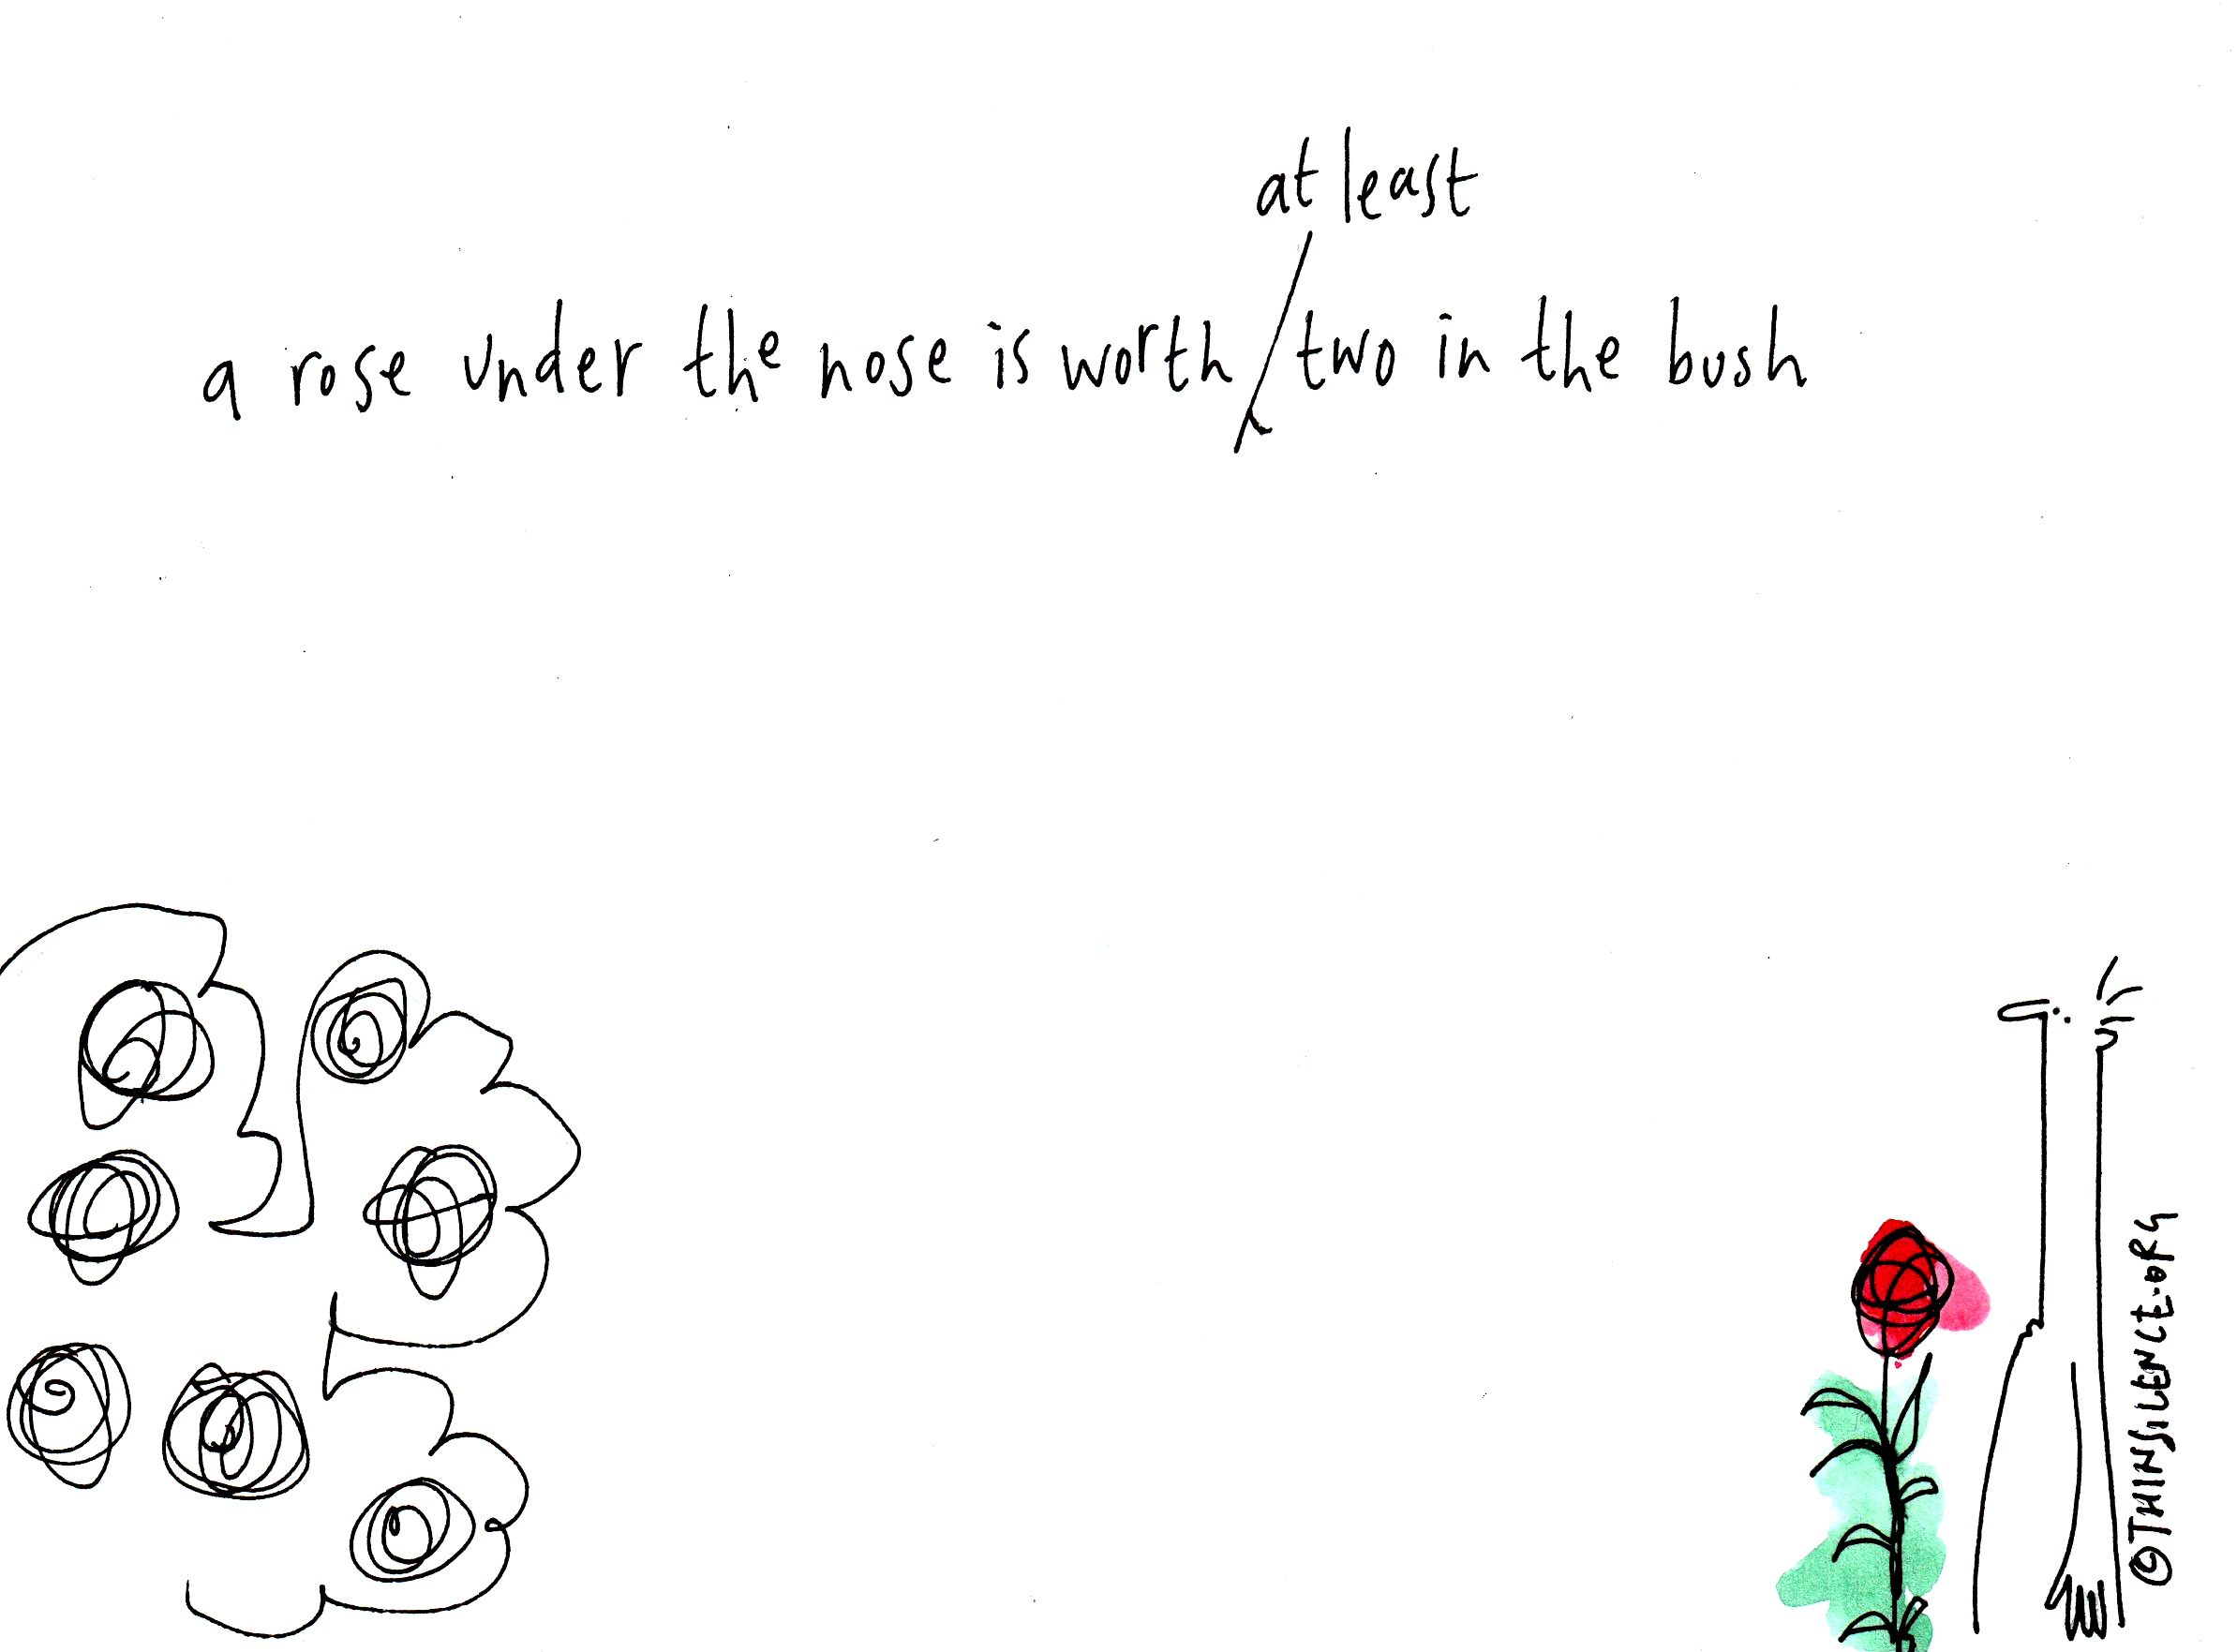 at least
a rose under the nose is worth two in the bush
©THINSILENCE.ORG